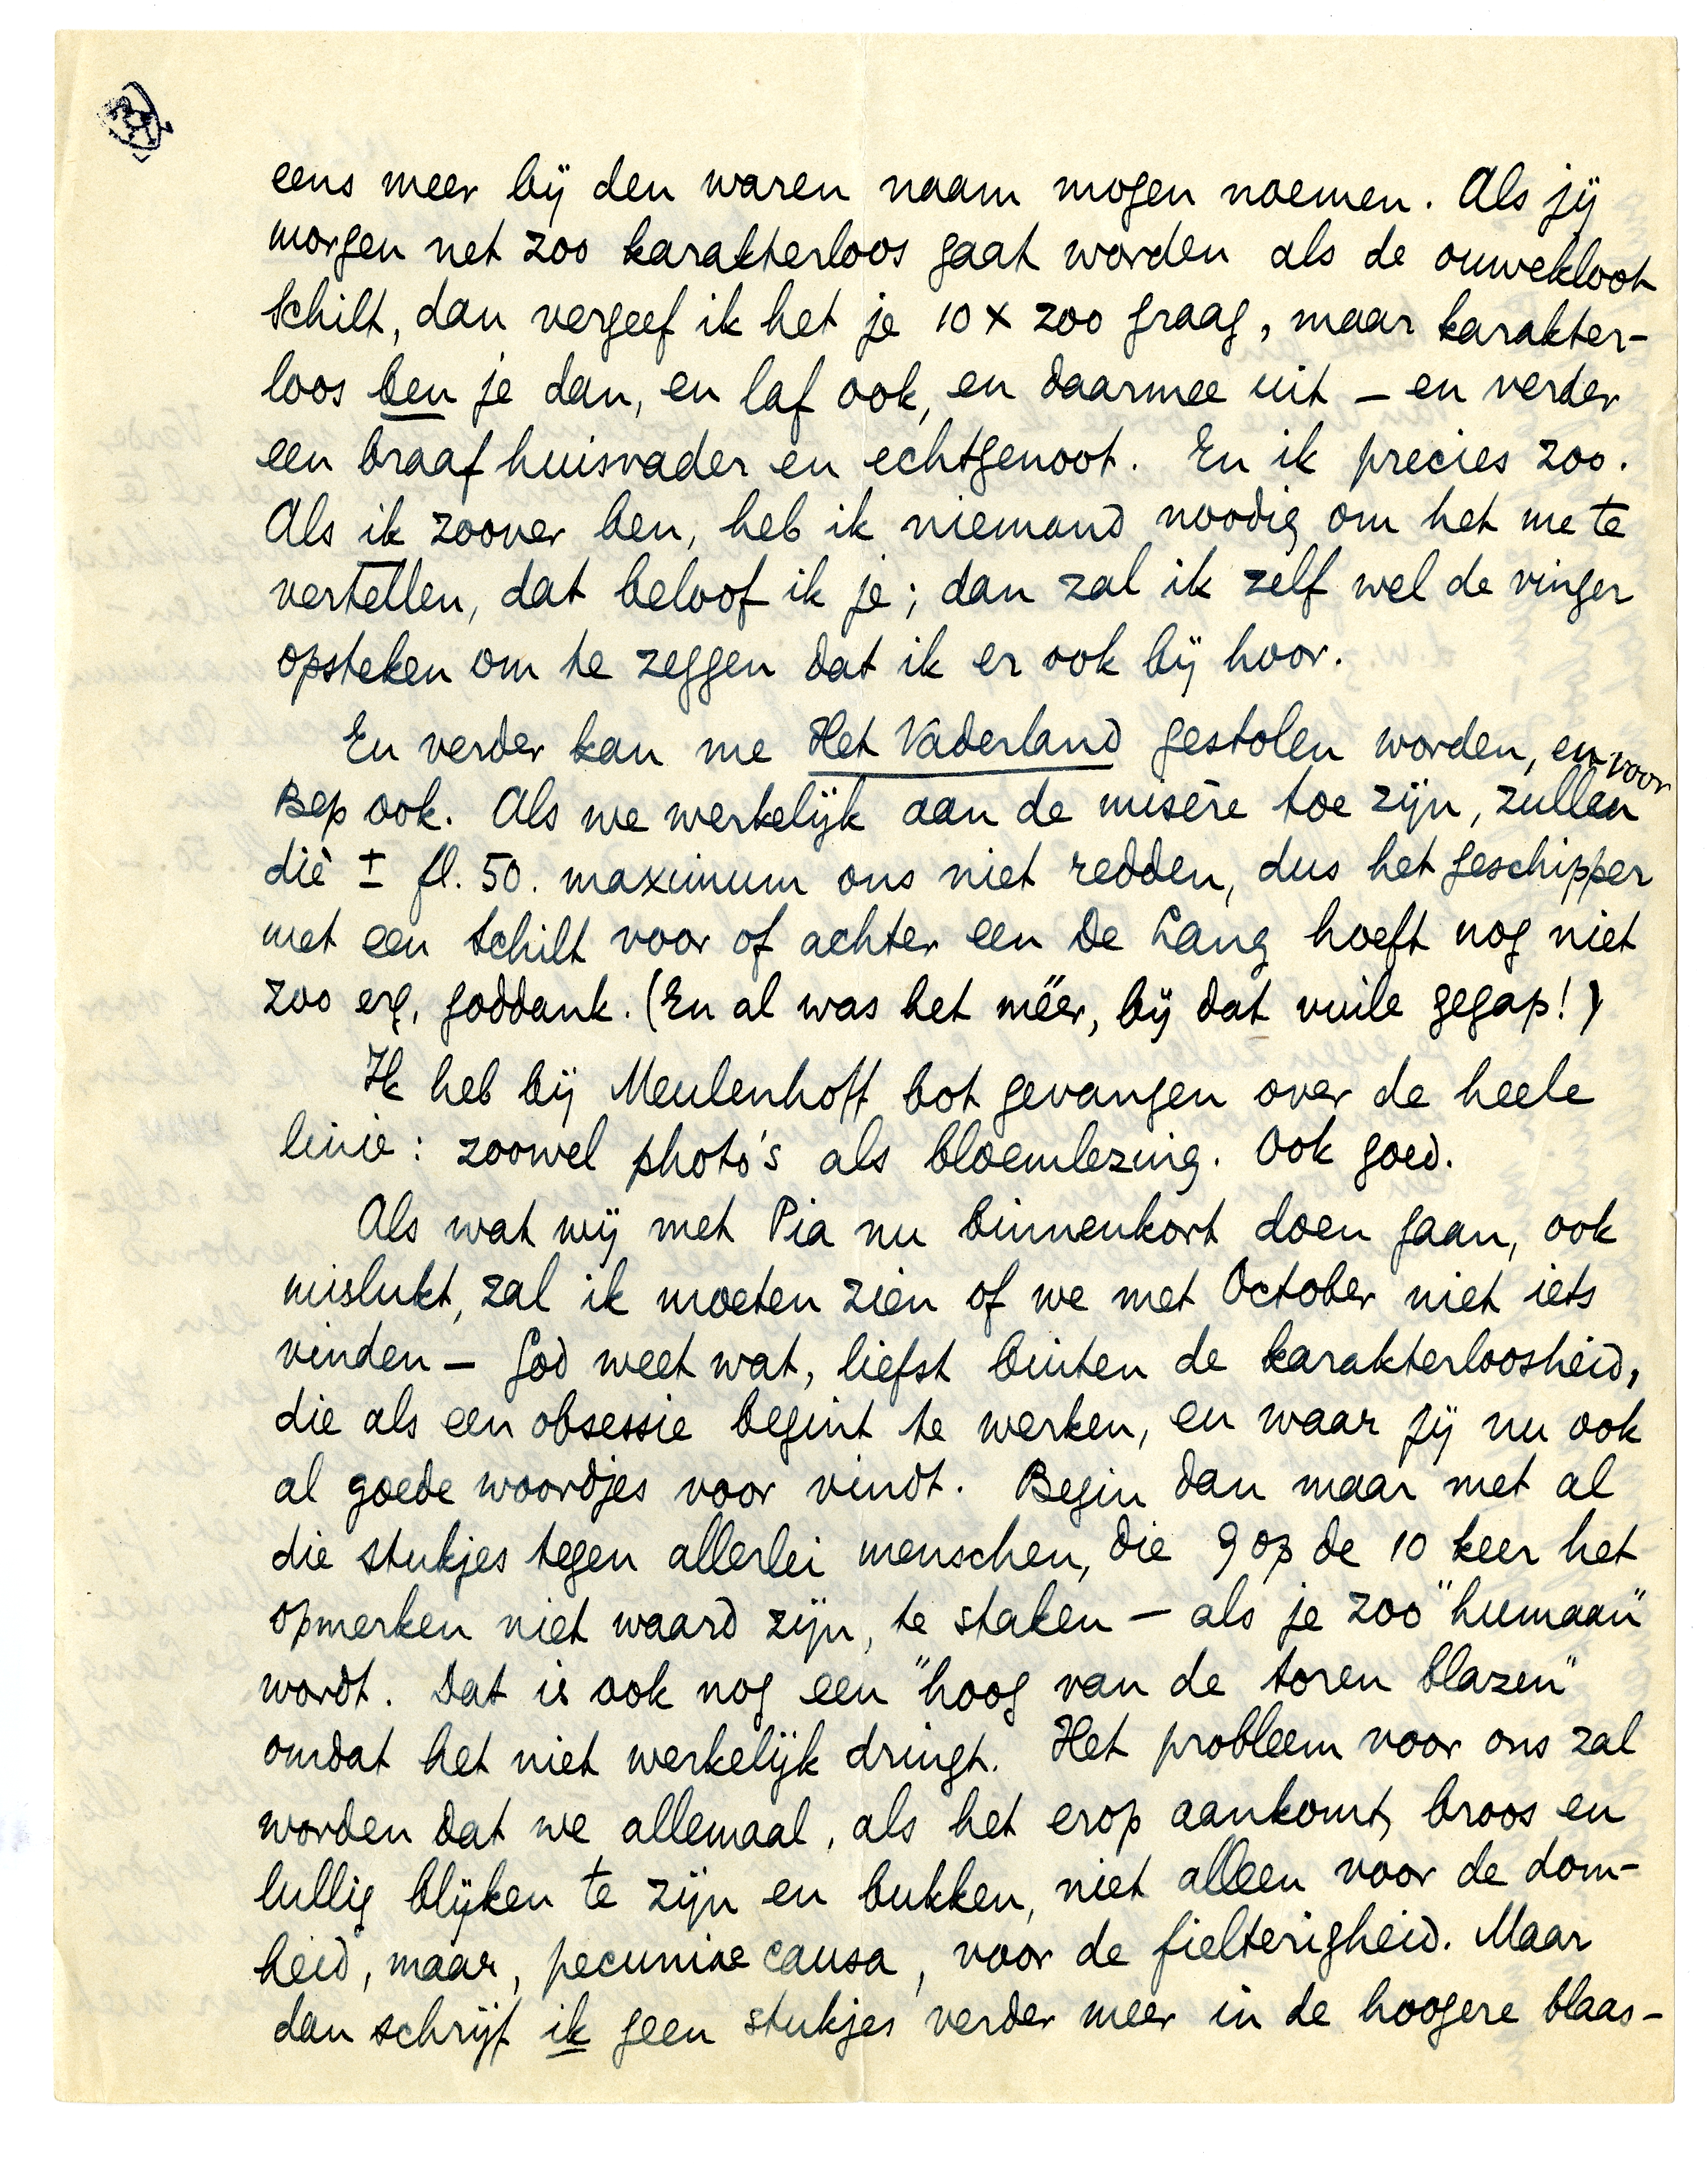 eens meer bij den waren naam mogen noemen. Als jij
morgen net zoo karakterloos gaat worden als de ouwekloot
Schilt, dan vergeef ik het je 10 x zoo graag, maar karakter-
loos ben je dan, en laf ook, en daarmee uit – en verder
een braaf huisvader en echtgenoot. En ik precies zoo.
Als ik zoover ben, heb ik niemand noodig om het me te
vertellen, dat beloof ik je; dan zal ik zelf wel de vinger
opsteken om te zeggen dat ik er ook bij hoor.
En verder kan me Het Vaderland gestolen worden, en voor
Bep ook. Als we werkelijk aan de misère toe zijn, zullen
die ± fl. 50. maximum ons niet redden, dus het geschipper
met een Schilt voor of achter een De Lang hoeft nog niet
zoo erg, goddank. (En al was het méér, bij dat vuile gegap!)
Ik heb bij Meulenhoff bot gevangen over de heele
linie: zoowel photo's als bloemlezing. Ook goed.
Als wat wij met Pia nu binnenkort doen gaan, ook
mislukt, zal ik moeten zien of we met October niet iets
vinden – God weet wat, liefst buiten de karakterloosheid,
die als een obsessie begint te werken, en waar jij nu ook
al goede woordjes voor vindt. Begin dan maar met al
die stukjes tegen allerlei menschen, die 9 op de 10 keer het
opmerken niet waard zijn, te staken – als je zoo "humaan"
wordt. Dat is ook nog een "hoog van de toren blazen"
omdat het niet werkelijk dringt. Het probleem voor ons zal
worden dat we allemaal, als het erop aankomt, broos en
lullig blijken te zijn en bukken, niet alleen voor de dom-
heid, maar, pecuniae causa, voor de fielterigheid. Maar
dan schrijf ik geen stukjes verder meer in de hoogere blaas-